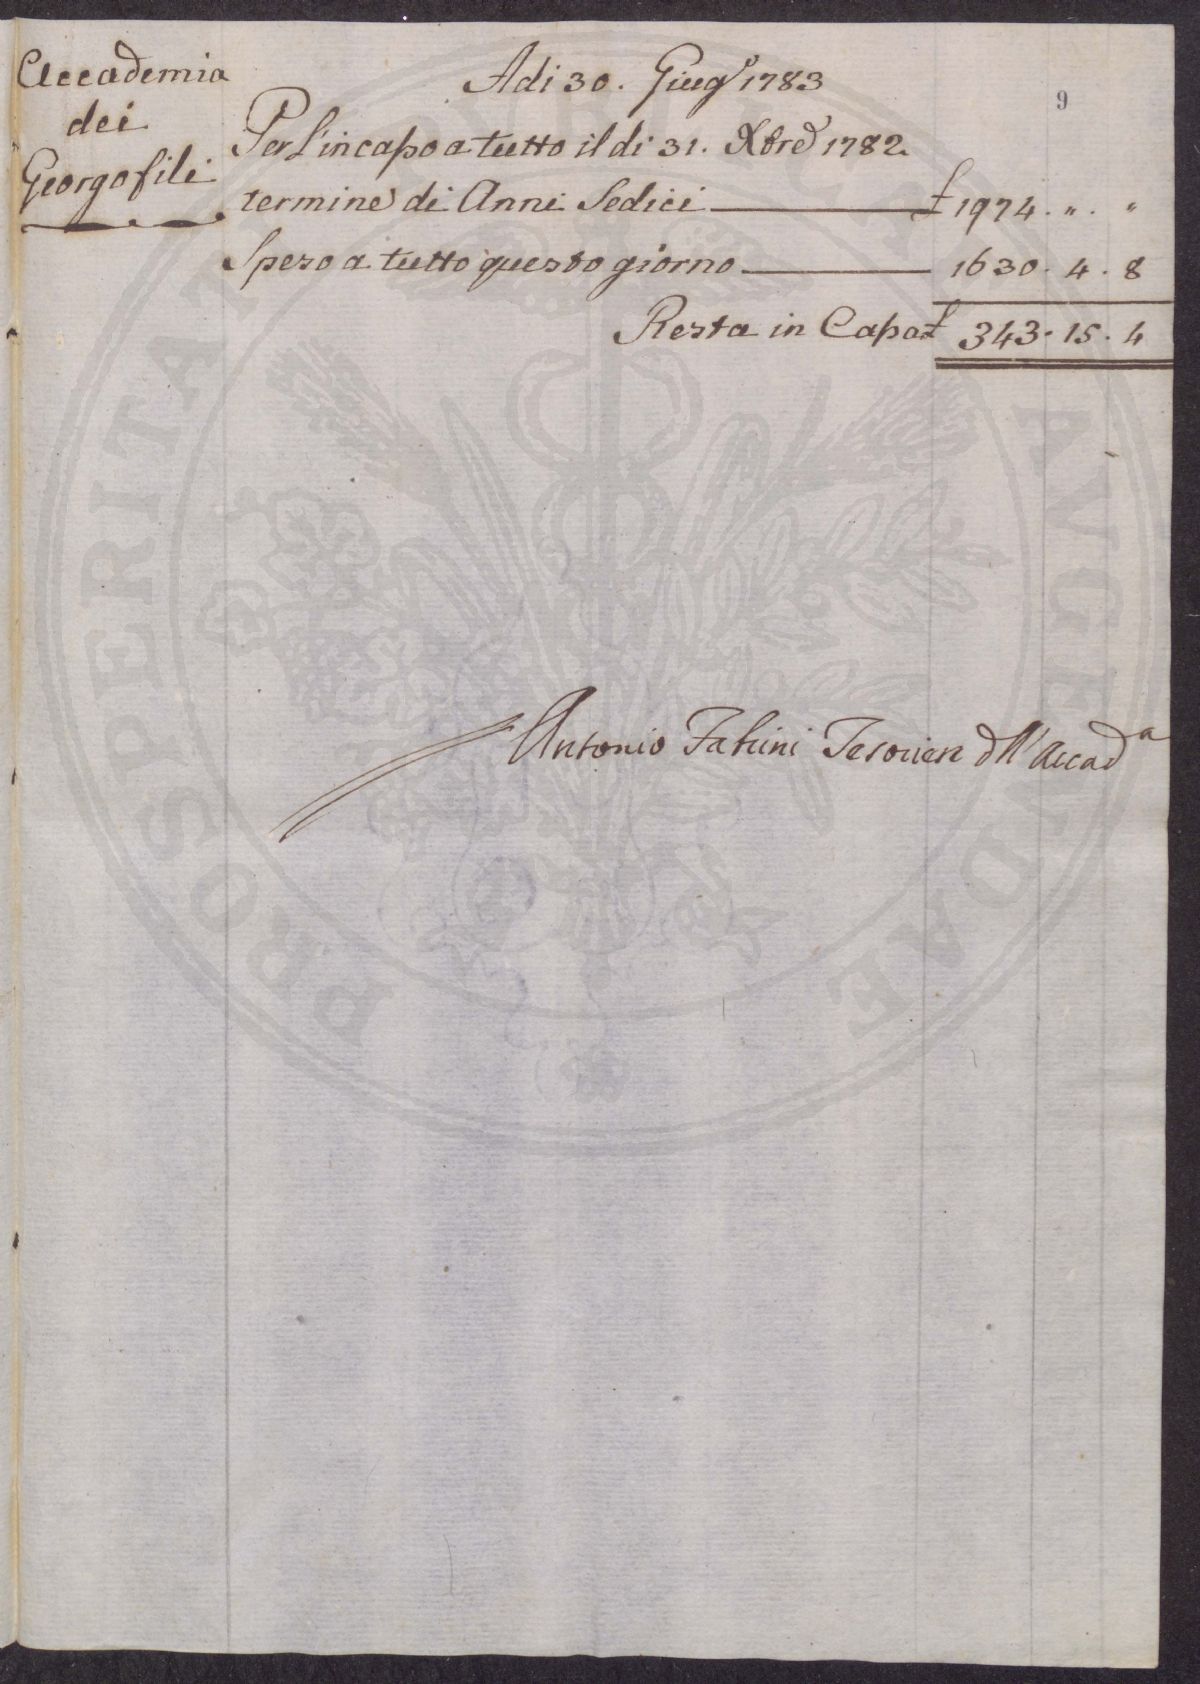 Accademia
dei
Georgofili
Adi 30. Giugº 1783
9
Per L'incaso a tutto il di 31. Xbre 1782.
termine di Anni Sedici £ 1974. " . "
Speso a tutto questo giorno 1630. 4. 8
Resta in Casa £ 343. 15. 4
Antonio Tesorier dll' Accadª
PROSPERITATI PUBLICAE AVGENDAE